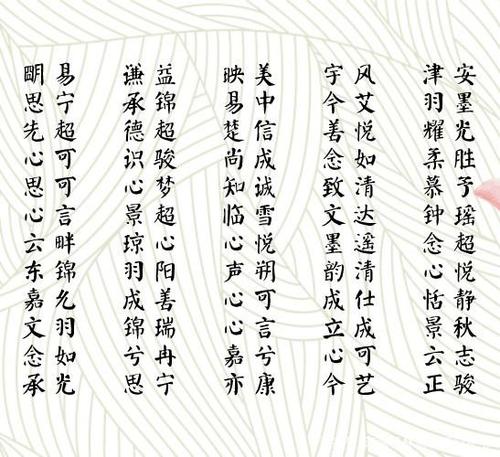 安墨光胜予瑶超悦静秋志骏
津羽耀柔慕钟念心恬景云正
风艾悦如清达遥清仕成可艺
宇今善念致文墨韵成立心今
美中信成诚雪悦朔可言兮康
映易楚尚知临心声心心嘉亦
益锦超骏梦超心阳善瑞冉宁
谦承德识心景琼羽成锦兮思
易宁超可可言畔锦久羽如光
明思先心思心云东嘉文念承